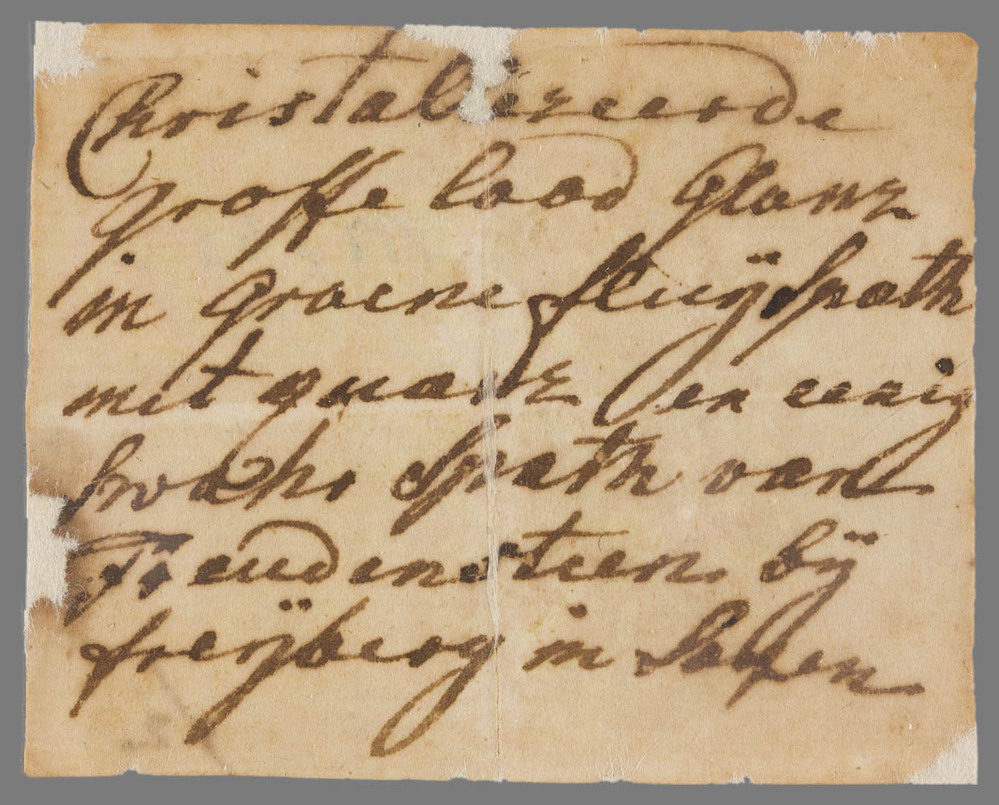 Kristaliseerde
groffe lood Glanz
in groene fluÿSpath
met quartz en eenig
Swahr Spath van
Freudensteen bÿ
freÿberg in Saxen